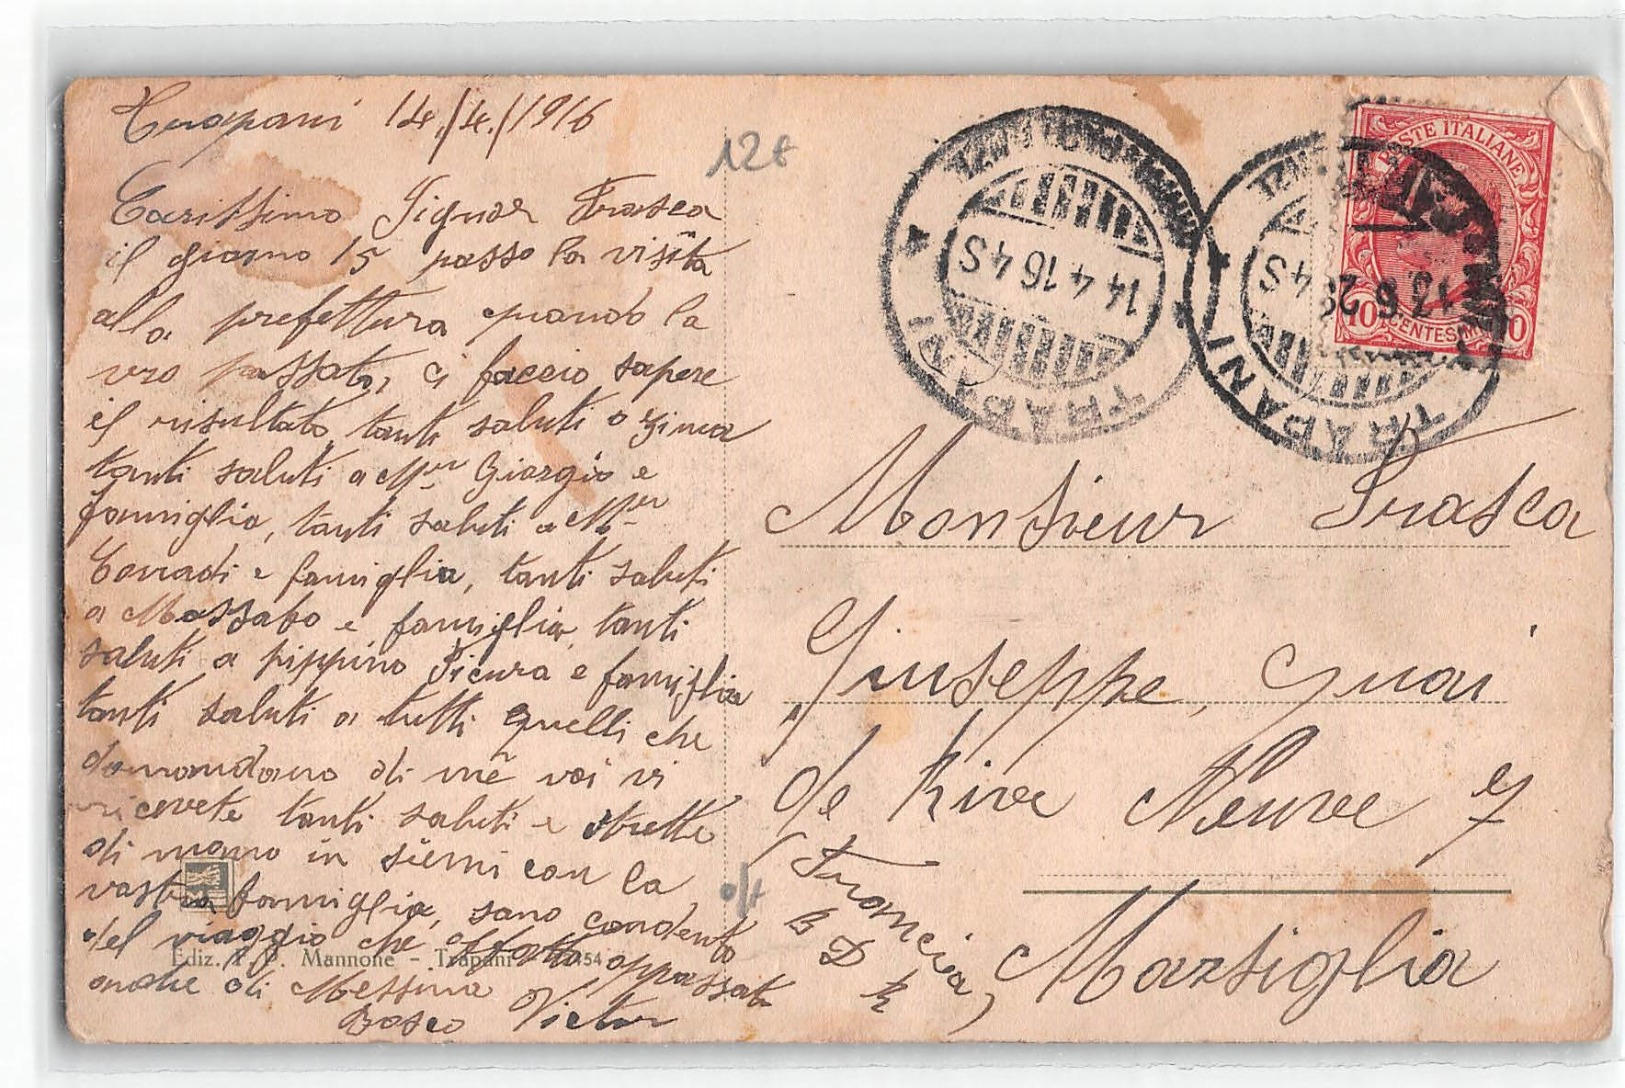 Trapani 14/4/1916
Carissimo Signor Frasca
il giorno 15 passo la visita
alla prefettura quando la
vro passato, ci faccio sapere
il risultato tanti saluti a Zima
tanti saluti a Mr Giorgio e
famiglia, tanti saluti a Mr
Corradi e famiglia, tanti saluti
a Massabo e famiglia, tanti
saluti a pippino Picura e famiglia
tanti saluti a tutti quelli che
domandano di mè voi vi
ricevete tanti saluti e strette
di mano in siemi con la
vastra famiglia, sano condento
del viaggio che o fatto appassato
anche di Messina
Bosco Victor
Ediz. F. P. Mannone - Trapani 454
12€
o/t
TRAPANI
14 4 16 4S
TRAPANI
4S
POSTE ITALIANE
10 CENTESIMI 10
Monsieur Frasca
Giuseppe, Quai
de Rive Neuve 7
(Francia)
Marsiglia